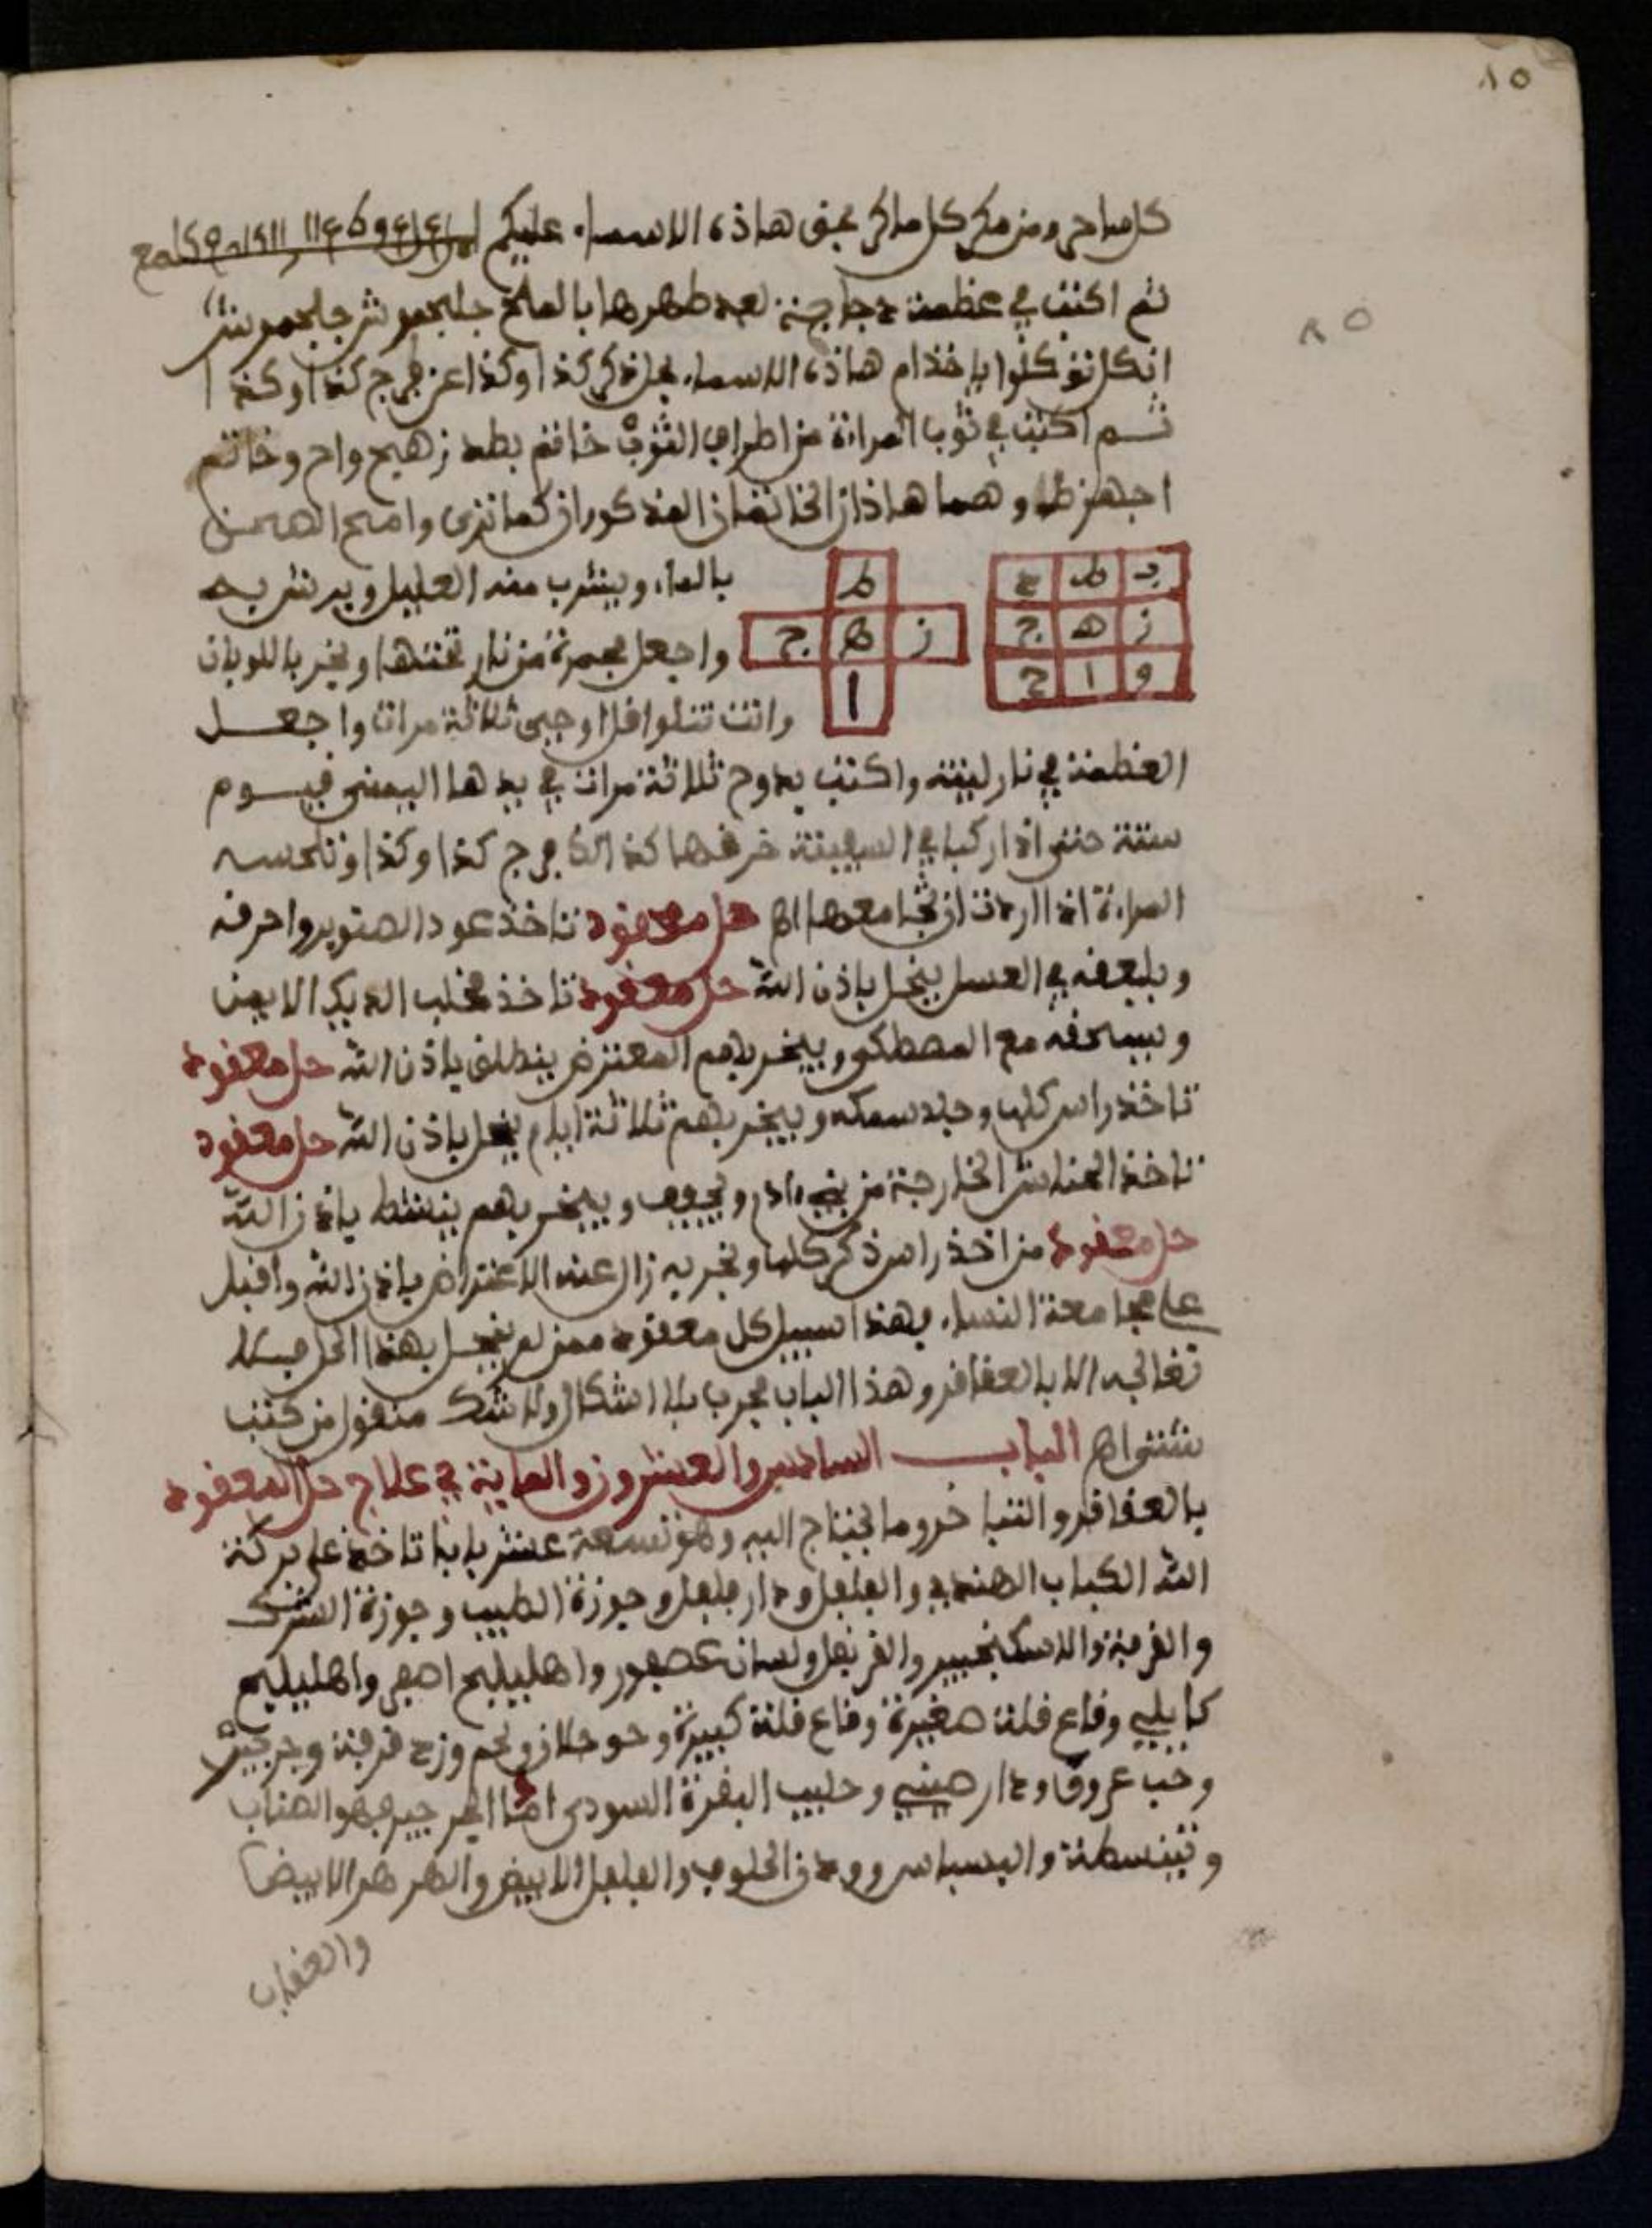 ٨٥
كل ساحر ومن مكر كل ماكر بحق هاذه الاسماء عليكم
ثم اكتب في عظمة دجاجة بعد طهرها بالملح جلجموش جلجموش
توكلوا يا خذام هاذه الاسماء بحل ذكر كذا وكذا عن فرج كذا وكذا
ثم اكتب في ثوب المراة من اطراف الثوب خاتم بطد زهج واح وخاتم
اجهزط وهما هاذان الخاتمان المذكوران كما ترى وامح
٨٥
ب ط د
ز ه ج
و ا ح
ط
ز ه ج
ا
بالماء ويشرب منه العليل ويرش به
واجعل مجمرة من نار تحتها وبخر باللوبان
وانت تتلوا قل اوحي ثلاثة مرات واجعل
العظمة في نار لينة واكتب بدوح ثلاثة مرات في يدها اليمنى
حتى اذا ركبا في السفينة خرقها كذالك فرج كذا وكذا وتلحسه
المراة اذا اردت ان تجامعها اه حل معقود تاخذ عود الصنوبر واحرقه
ويلعقه في العسل ينحل باذن الله حل معقود تاخذ مخلب الديك الايمن
ويسحقه مع المصطكى ويبخر بهم المعترض ينطلق باذن الله حل معقود
تاخذ راس كلب وجلد سمكه ويبخر بهم ثلاثة ايام ينحل باذن الله حل معقود
تاخذ الخارجة من بني ادم ويجفف ويبخر بهم ينشط باذن الله
حل معقود من اخذ راس ذكر كلب وبخر به زال عنه الاعتراض باذن الله واقبل
على مجامعة النساء فهذا سبيل كل معقود ممن لم ينحل بهذا الحل فلا
تعالجه الا بالعقاقر وهذا الباب مجرب بلا اشكال ولا شك منقول من كتب
شتى اه الباب السادس والعشرون والماية في علاج حل المعقود
بالعقاقر والتباخر وما يحتاج اليه وهو تسعة عشر بابا تاخذ على بركة
الله الكباب الهندي والفلفل ودار فلفل وجوزة الطيب وجوزة الشرك
والقرفة والاسكنجبير والقرنفل ولسان عصفور واهليليج اصفر واهليليج
كابلي وقاع قلة صغيرة وقاع قلة كبيرة وخوجلان قرفة وجرجير
وحب عروق ودار صيني وحليب البقرة السودى اما الجرجير فهو الصناب
وتيسنطة والبسباس وودن الحلوف والفلفل الابيض والحرهر الابيض
والعقاب